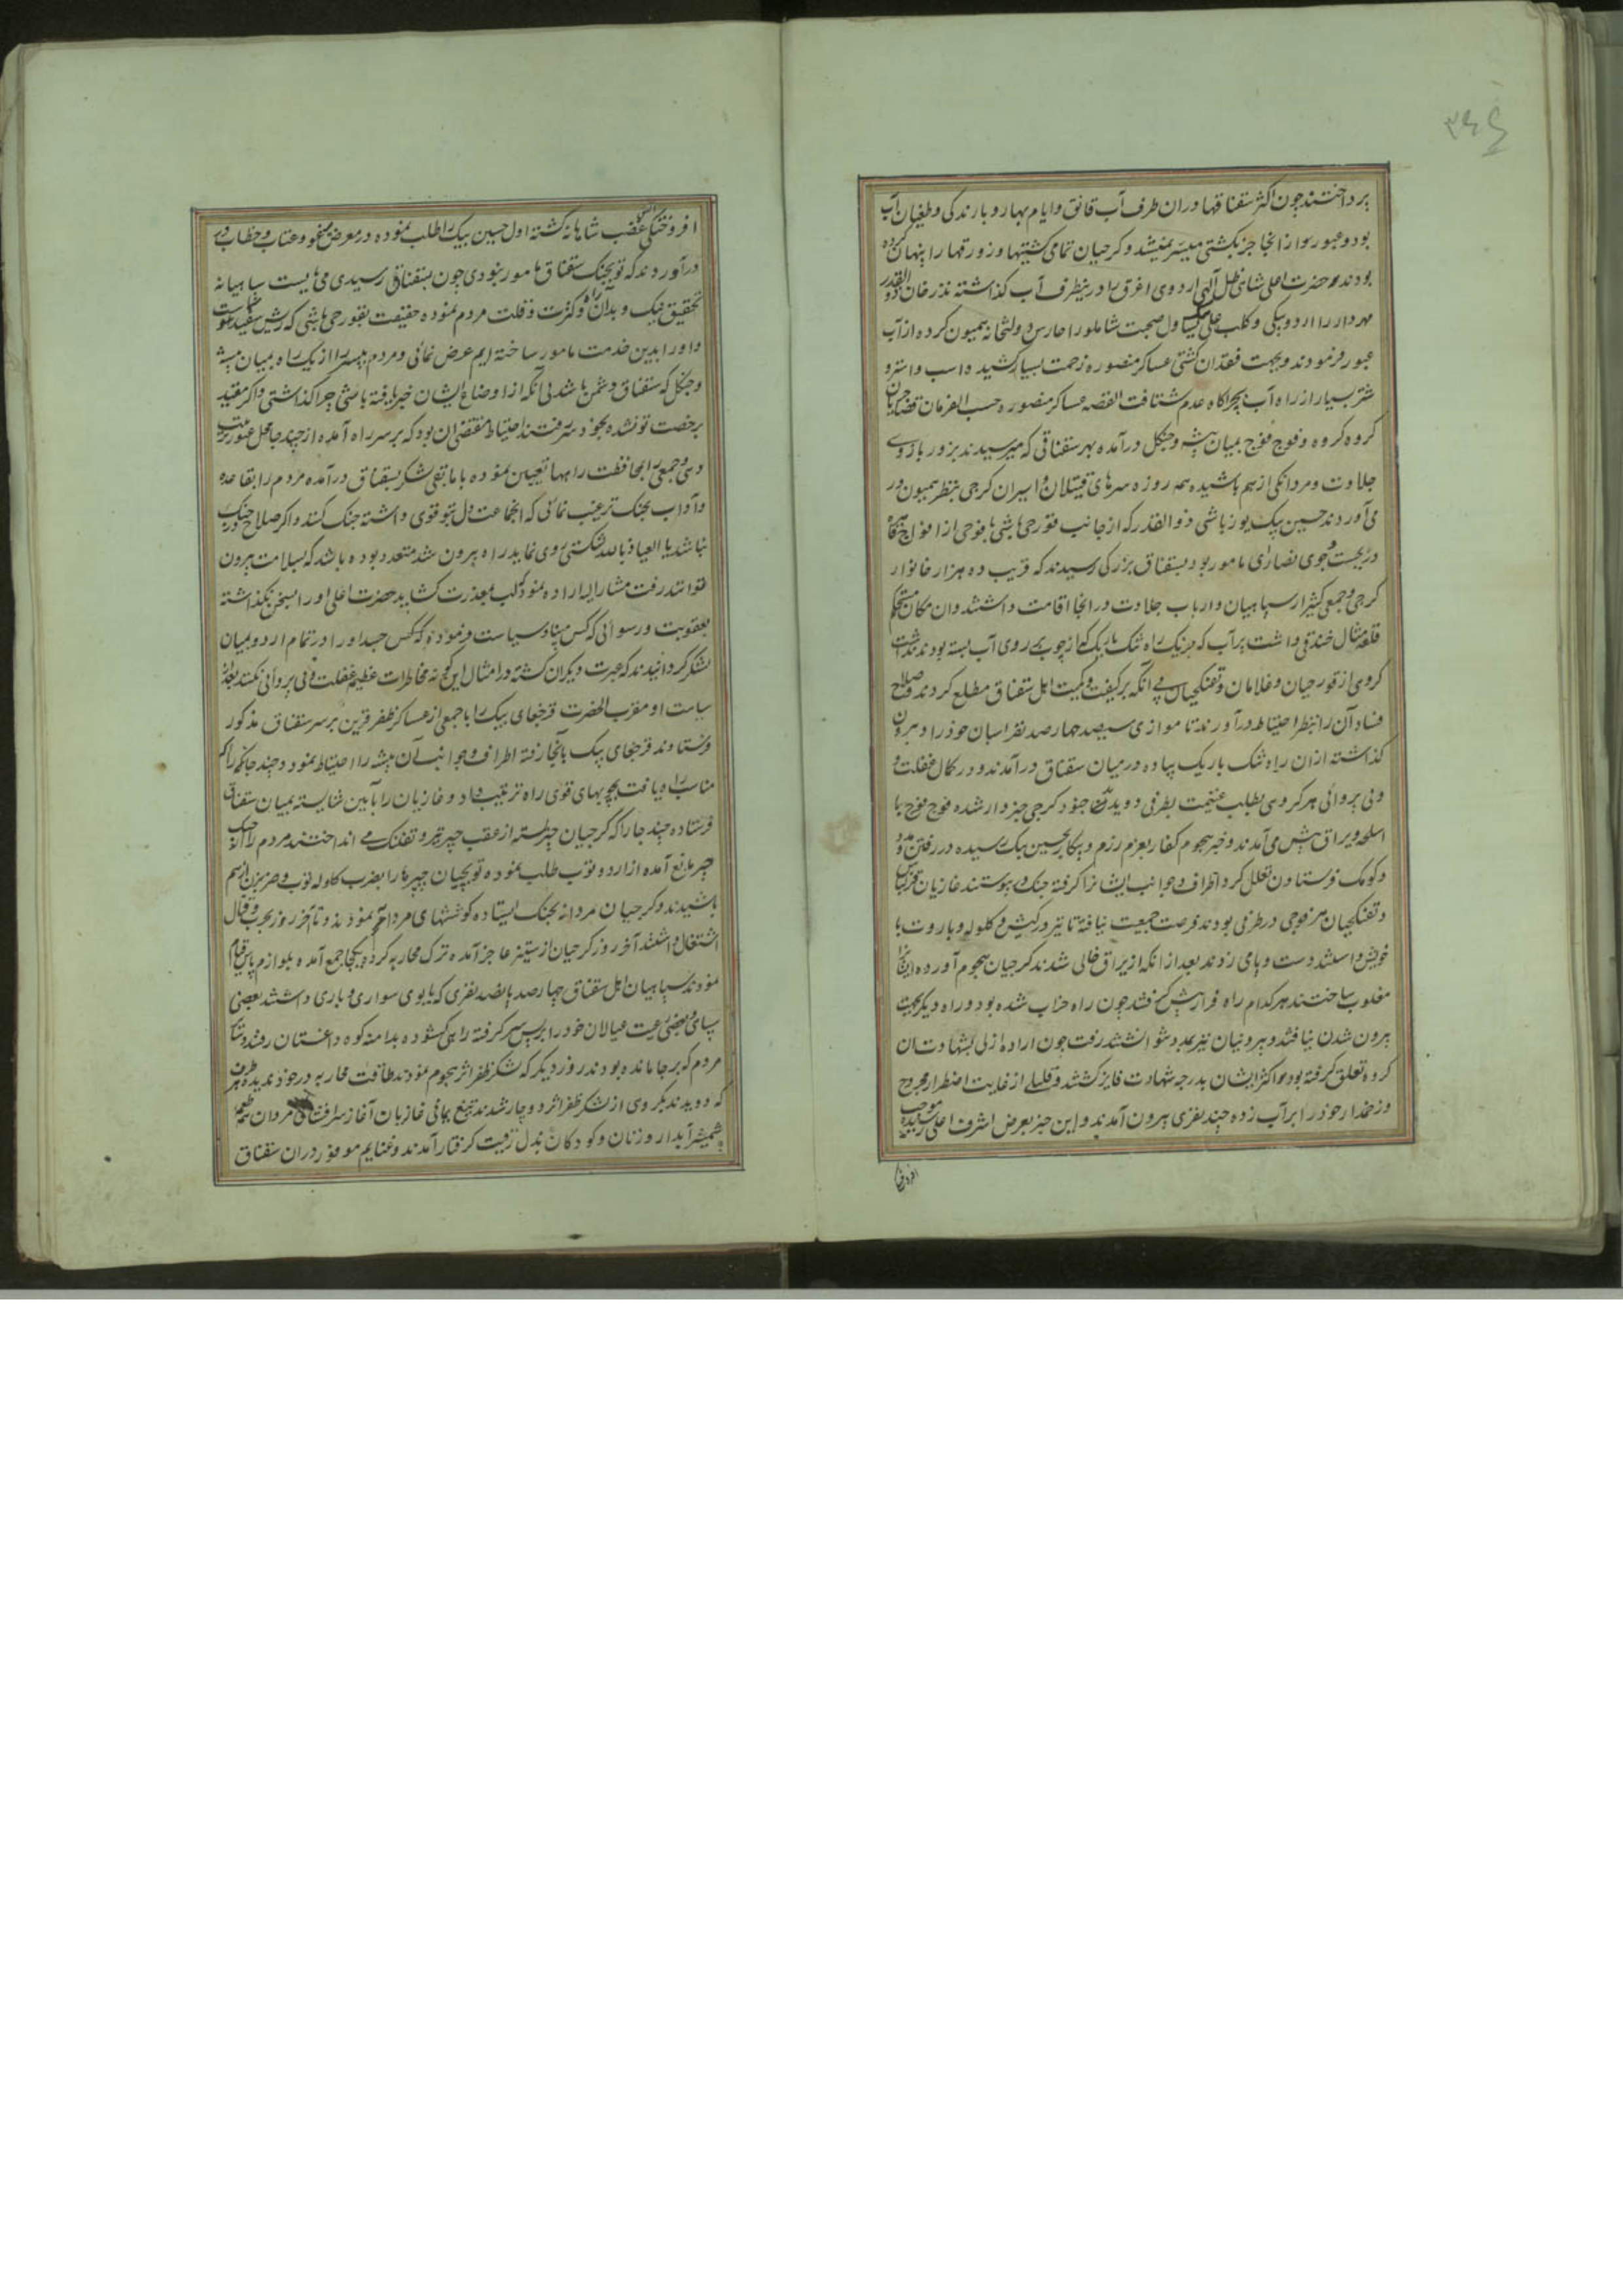 ۳۶۶
برداختند چون اکثر سقناقها دران طرف آب قانق و ایام بهار و بارندگی و طغیان آب
بود و عبور سوار از انجا جز بکشتی میسر نمیشد و کرجیان تمامی کشتیها و زورقها را پنهان کرده
بودند حضرت اعلی شاهی ظل آلهی اردوی اغرق را درینطرف آب کذاشته نذر خان ذوالقدر
مهردار را اردو بیکی و کلب علی بیک یساول صحبت شاملو را حارس دولتخانه همیون کرده از آب
عبور فرمودند و بجهت فقدان کشتی عساکر منصوره زحمت بسیار کشید و اسب و استر و
شتر بسیار از راه آب بچراکاه عدم شتافت القصه عساکر منصوره حسب الفرمان قضا جریان
کروه کروه و فوج فوج بمیان بیشه و جنکل درآمده بهر سقناقی که میرسیدند بزور بازوی
جلادت و مردانکی از هم پاشیده همه روزه سرهای قتیلان و اسیران کرجی بنظر همیون در
می آوردند حسین بیک یوزباشی ذوالقدر که از جانب قورجی باشی با فوجی از افواج قاهره
در جست و جوی نصاری مامور بود بسقناق بزرکی رسیدند که قریب ده هزار خانوار
کرجی و جمعی کثیر از سپاهیان و ارباب جلادت در انجا اقامت داشتند وان مکان مستحکم
قلعه مثال خندقی داشت پر آب که جز یک راه تنک باریک که از چوب بر روی آب بسته بودند نداشت
کروی از قورجیان و غلامان و تفنکچیان بی انکه بر کیفیت و کمیت اهل سقناق مطلع کردند و صلاح
فساد آن را بنظر احتیاط درآورند تا موازی سیصد چهارصد نفر اسبان خود را در بیرون
کذاشته ازان راه تنک باریک پیاده در میان سقناق درآمدند و در کمال غفلت و
بی پروائی هر کروسی بطلب غنیمت بطرفی دویدند جنود کرجی خبردار شده فوج فوج با
اسلحه و یراق پیش می آمدند و خبر هجوم کفار بعزم رزم و پیکار بحسین بیک رسیده در رفتن و مدد
و کومک فرستادن تعلل کرد اطراف و جوانب ایشانرا کرفته جنک در پیوستند غازیان قزلباش
و تفنکچیان هر فوجی در طرفی بودند فرصت جمعیت نیافته تا تیر در کیش و کلوله و باروت با
خویش داشتند دست و پایی زدند بعد از انکه از یراق خالی شدند کرجیان هجوم آورده ایشانرا
مغلوب ساختند هر کدام راه فرار پیش کرفتند چون راه خراب شده بود و راه دیکر بجهت
بیرون شدن نیافتند و بیرونیان نیز بمدد نتوانستند رفت چون اراده ازلی بشهادت ان
کروه تعلق کرفته بود اکثر ایشان بدرجه شهادت فایز کشتند و قلیلی از غایت اضطرار مجروح
و زخمدار خود را بر آب زده چند نفری بیرون آمدند و این خبر بعرض اشرف اعلی رسیده موجب
افروختکی
افروختکی آتش غضب شاهانه کشته اول حسین بیک را طلب نموده در معرض و عتاب و خطاب در
درآوردند که تو بجنک سقناق مامور نبودی چون بسقناق رسیدی می بایست سپاهیانه
تحقیق نیک و بد آن راه و کثرت و قلت مردم نموده حقیقت بقورجی باشی که ریش سفید
و او را بدین خدمت مامور ساخته ایم عرض نمائی و مردم بیسر را از یک راه بمیان بیشه
و جنکل که سقناق دشمن باشد بی آنکه از اوضاع ایشان خبر یافته باشی چرا کذاشتی و اکر مقید
برخصت تو نشده بخود سر رفتند احتیاط مقتضی ان بود که بر سر راه آمده از چند جا محل عبور ترتیب
دهی و جمعی را بمحافظت راهها تعیین نموده با مابقی لشکر بسقناق درآمده مردم را بقاعده
و آداب بجنک ترغیب نمائی که انجماعت دل بتو قوی داشته جنک کنند و اکر صلاح در جنک
نباشد یا العیاذ بالله شکستی روی نماید راه بیرون شد متعدد بوده باشد که بسلامت بیرون
توانند رفت مشارالیه اراده نمود که لب بمعذرت کشاید حضرت اعلی او را بسخن نکذاشته
بعقوبت و رسوائی که کس مبیناد سیاست فرموده که کس جسد او را در تمام اردو بمیان
لشکر کردانیدند که عبرت دیکران کشته در امثال این کونه مخاطرات عظیمه غفلت و بی پروائی نکنند بعد از
سیاست او مقرب الحضرت قرچغای بیک را با جمعی از عساکر ظفر قرین بر سر سقناق مذکور
فرستادند قرچغای بیک بانجا رفته اطراف و جوانب آن بیشه را احتیاط نمود و چند جا که راکم
مناسب راه یافت بچوبهای قوی راه ترتیب داد و غازیان را بآیین شایسته بمیان سقناق
فرستاده چند جا را که کرجیان چپر بسته از عقب چپر تیر و تفنک می انداختند مردم را
چپر مانع آمده از اردو توب طلب نموده توبچیان چپرها را بضرب کلوله توب و ضربزن از هم
پاشیدند و کرجیان مردانه بجنک ایستاده کوششهای مردانه نمودند و تا آخر روز بحرب و قتال
اشتغال داشتند آخر روز کرجیان از ستیز عاجز آمده ترک محاربه کرده یکجا جمع آمده بلوازم پاس قیام
نمودند سپاهیان اهل سقناق چهارصد پانصد نفری که یابوی سواری و باری داشتند بعضی
سپاهی و بعضی رعیت عیالان خود را بر پس سر کرفته راهی کشوده بدامنه کوه داغستان رفتند و تتمه
مردم که بر جا مانده بودند روز دیکر که لشکر ظفر اثر هجوم نمودند طاقت محاربه در خود ندیده بهر طرف
که دویدند بکروهی از لشکر ظفر اثر دوچار شدند تیغ یمانی غازیان آغاز سرافشانی مردان طعمه
شمشیر آبدار و زنان و کودکان بذل رقیت کرفتار آمدند و غنایم موفور دران سقناق